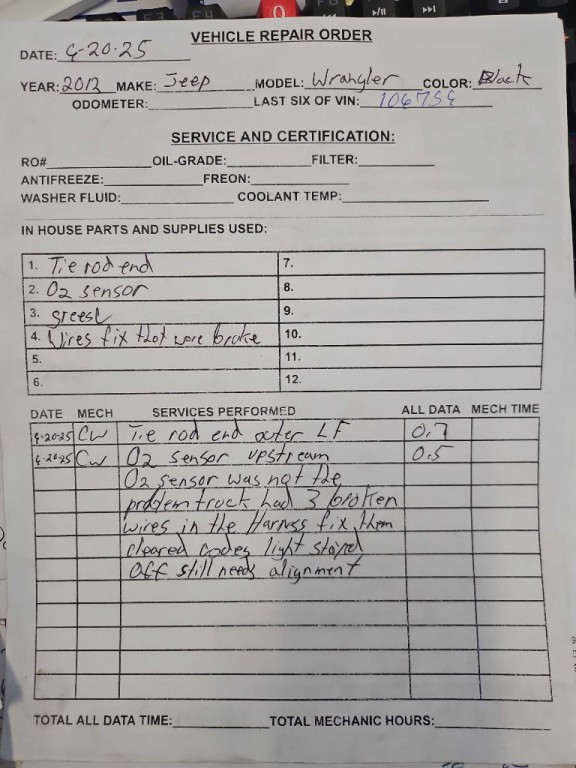 VEHICLE REPAIR ORDER
DATE: 6-20-25
YEAR: 2012 MAKE: Jeep MODEL: Wrangler COLOR: Black
ODOMETER: LAST SIX OF VIN:
SERVICE AND CERTIFICATION:
RO# OIL-GRADE: FILTER:
ANTIFREEZE: FREON:
WASHER FLUID: COOLANT TEMP:
IN HOUSE PARTS AND SUPPLIES USED:
1. Tie rod end 7.
2. O2 sensor 8.
3. 9.
4. Wires fix that were broke 10.
5. 11.
6. 12.
DATE MECH SERVICES PERFORMED ALL DATA MECH TIME
6-20-25 CW Tie rod end outer LF 0.7
6-20-25 CW O2 sensor upstream 0.5
O2 sensor was not the
problem truck had 3 broken
wires in the Harness fix them
cleared codes light stayed
off still needs alignment
TOTAL ALL DATA TIME: TOTAL MECHANIC HOURS: